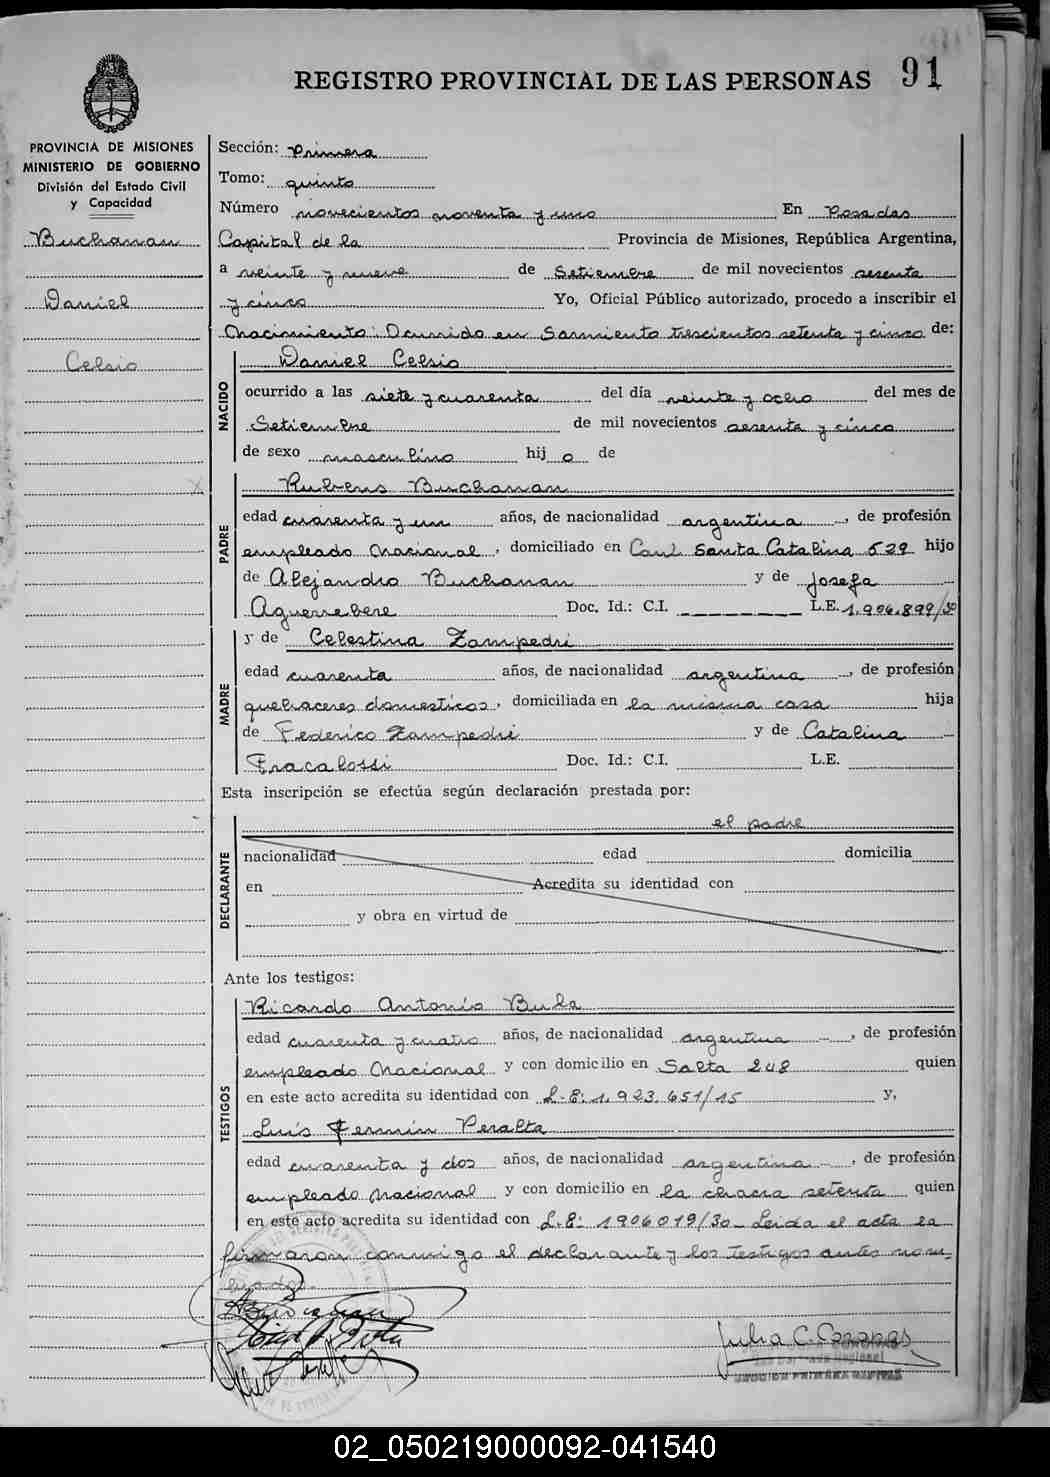 REGISTRO PROVINCIAL DE LAS PERSONAS 91
PROVINCIA DE MISIONES
MINISTERIO DE GOBIERNO
División del Estado Civil
y Capacidad
Buchanan
Daniel
Celsio
Sección: Primera
Tomo: quinto
Número novecientos noventa y uno En Posadas
Capital de la Provincia de Misiones, República Argentina,
a veinte y nueve de Setiembre de mil novecientos sesenta
y cinco Yo, Oficial Público autorizado, procedo a inscribir el
Nacimiento: Ocurrido en Sarmiento trescientos setenta y cinco de:
NACIDO
Daniel Celsio
ocurrido a las siete y cuarenta del día veinte y ocho del mes de
Setiembre de mil novecientos sesenta y cinco
de sexo masculino hij o de
PADRE
Rubens Buchanan
edad cuarenta y un años, de nacionalidad argentina, de profesión
empleado Nacional, domiciliado en Cnel. Santa Catalina 529 hijo
de Alejandro Buchanan y de Josefa
Aguerrebere Doc. Id.: C.I. L.E. 1.906.899/30
MADRE
y de Celestina Zampedri
edad cuarenta años, de nacionalidad argentina, de profesión
quehaceres domesticos, domiciliada en la misma casa hija
de Federico Zampedri y de Catalina
Fracalossi Doc. Id.: C.I. L.E.
Esta inscripción se efectúa según declaración prestada por:
DECLARANTE
el padre
nacionalidad edad domicilia
en Acredita su identidad con
y obra en virtud de
Ante los testigos:
TESTIGOS
Ricardo Antonio Bula
edad cuarenta y cuatro años, de nacionalidad argentina, de profesión
empleado Nacional y con domicilio en Salta 248 quien
en este acto acredita su identidad con L.E: 1.923.651/15 y,
Luis Fermin Peralta
edad cuarenta y dos años, de nacionalidad argentina, de profesión
empleado Nacional y con domicilio en la chacra setenta quien
en este acto acredita su identidad con L.E: 1906019/30 Leida el acta la
firmaron conmigo el declarante y los testigos antes nom-
brados.
Julia C.
02_050219000092-041540